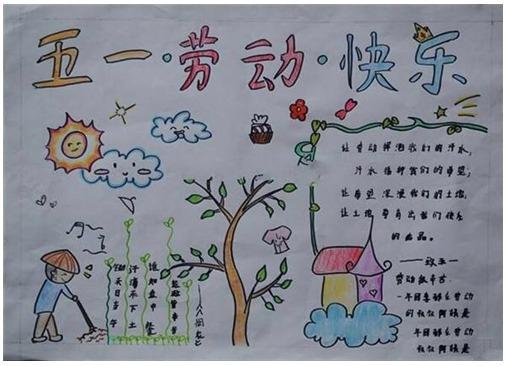 五一·劳动·快乐
让劳动挥洒我们的汗水，
汗水播种我们的希望，
让希望浸没我们的土壤，
让土壤孕育出我们快乐
的
锄禾日当午
汗滴禾下土
谁知盘中餐
粒粒皆辛苦
——《悯农》
劳动最辛苦
一年四季都在劳动
的 阿姨是
一年四季都在劳动
的 阿姨是